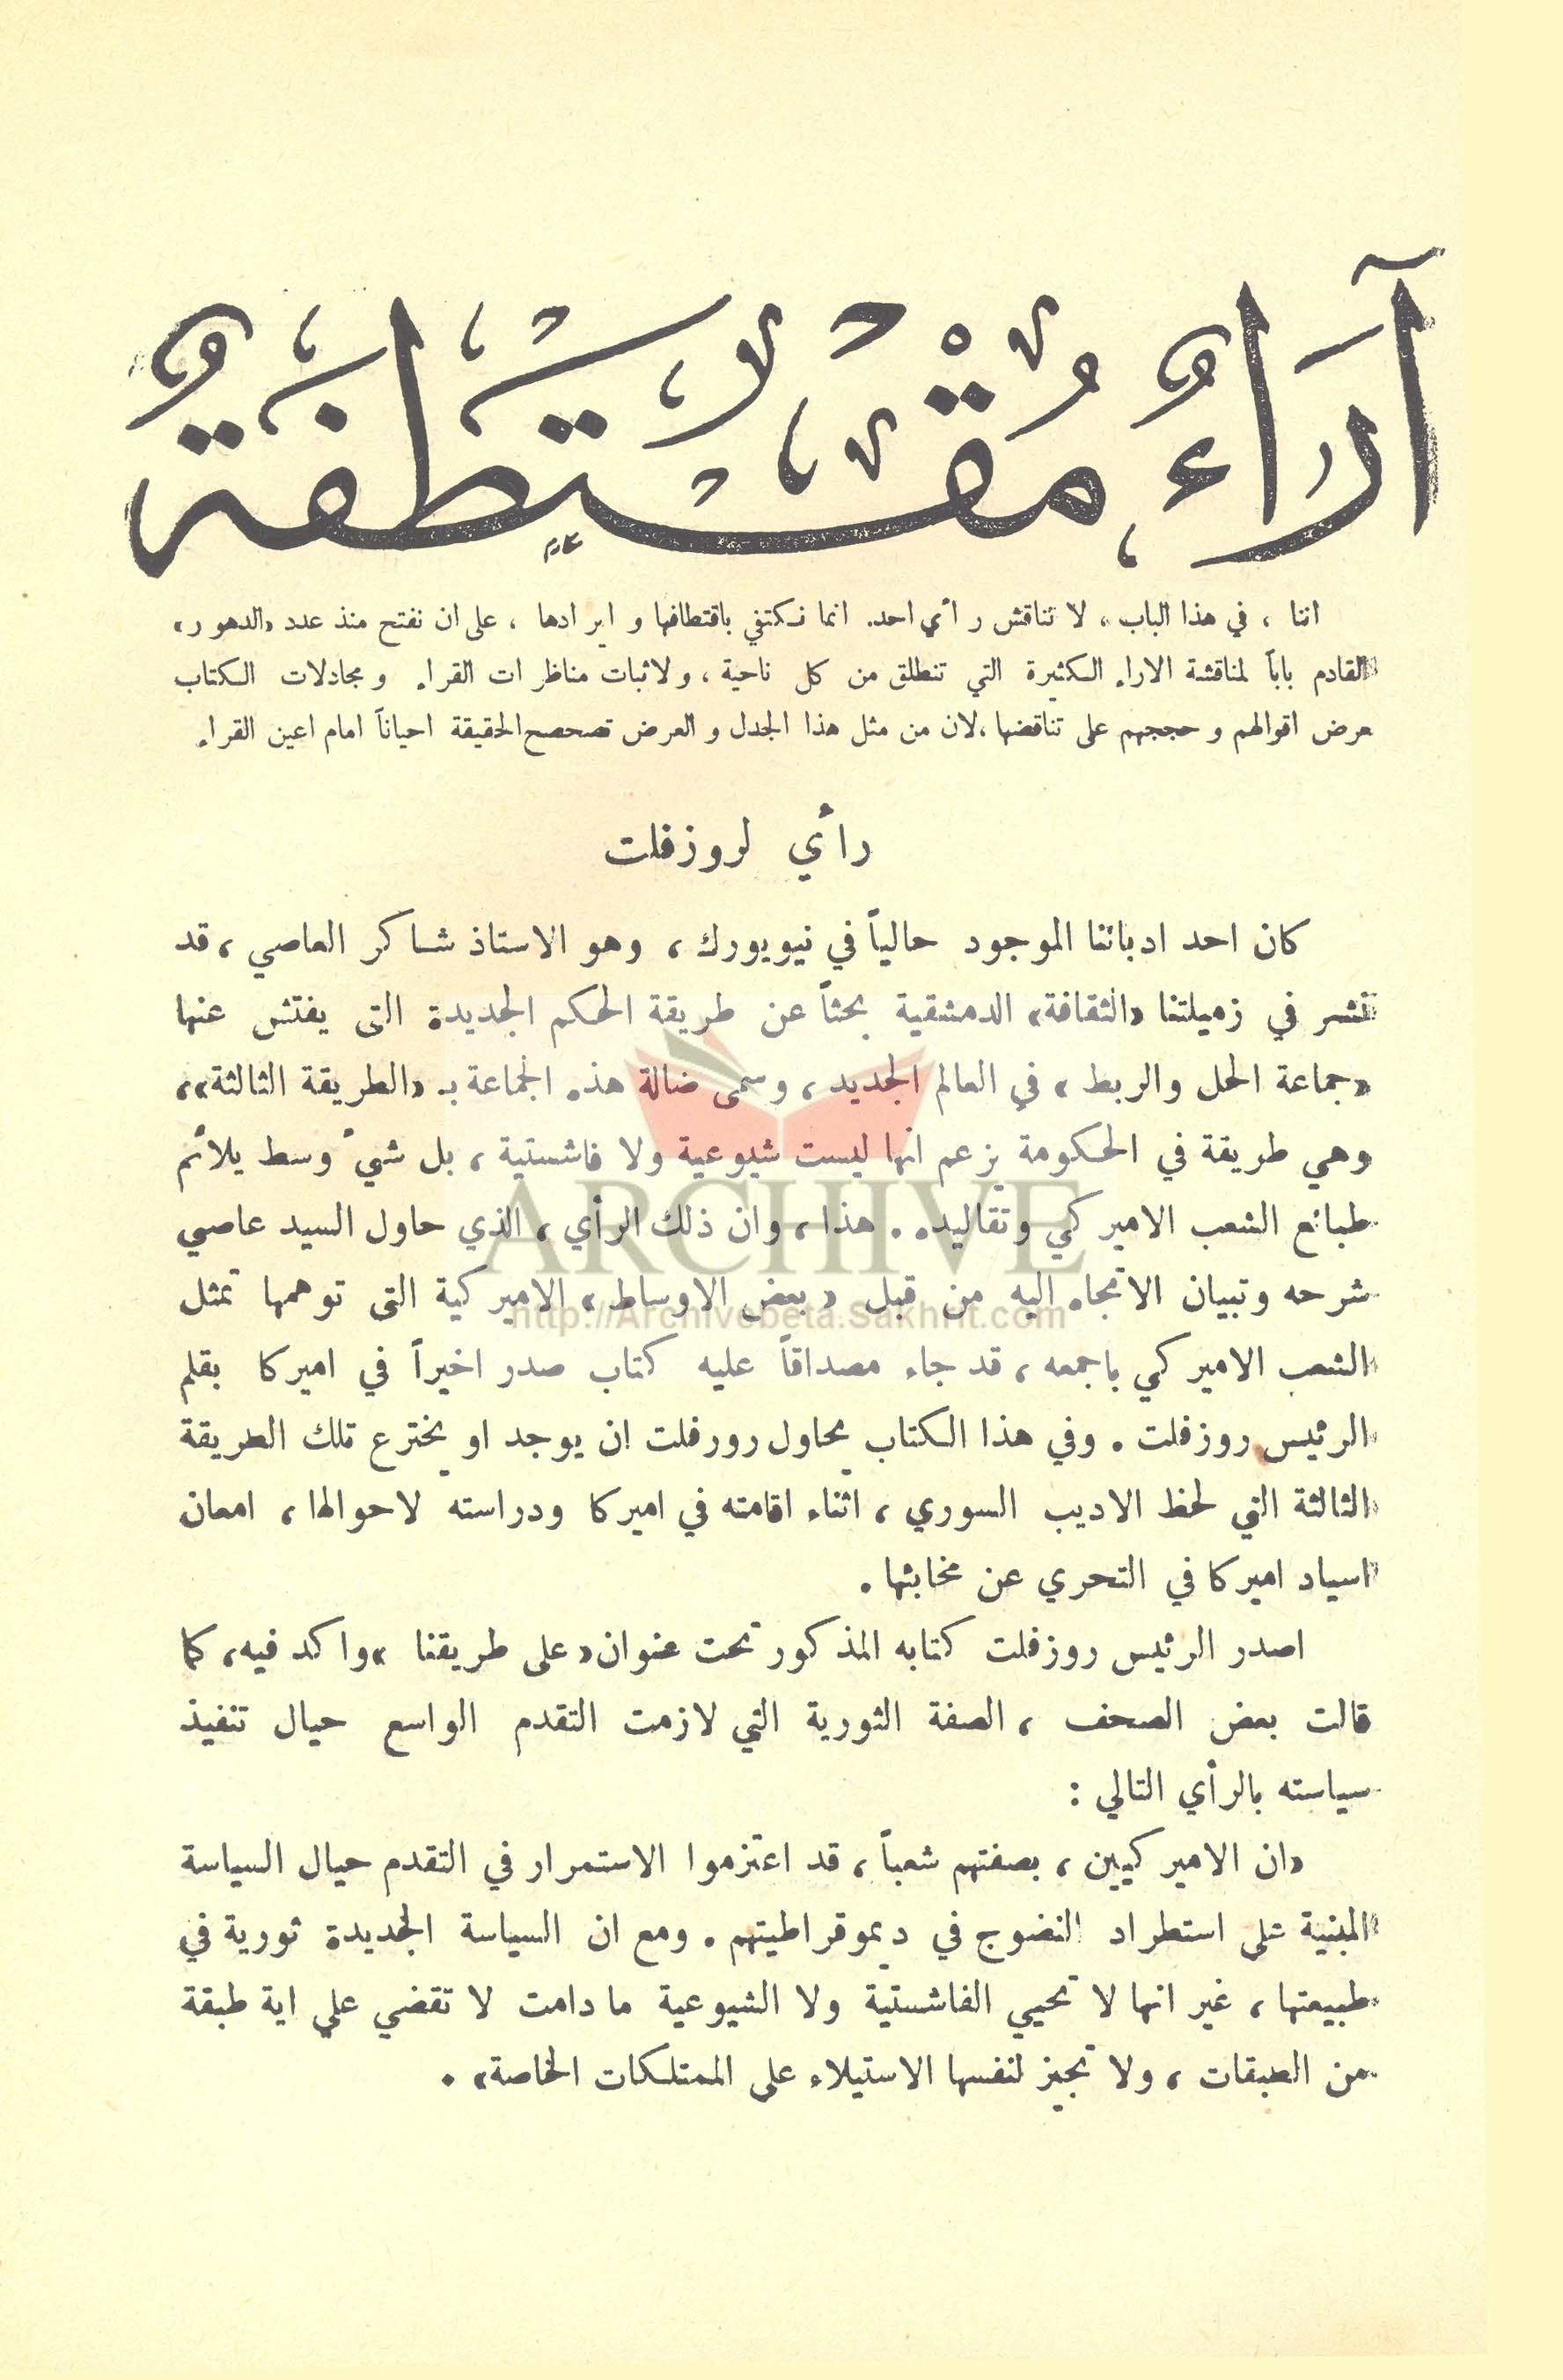 آرَاءٌ مُقْتَطَفَةٌ
اننا ، في هذا الباب ، لا نناقش رأي احد. انما نكتفي باقتطافها و ايرادها ، على ان نفتح منذ عدد «الدهور»
القادم باباً لمناقشة الاراء الكثيرة التي تنطلق من كل ناحية ، ولاثبات مناظرات القراء ومجادلات الكتاب
عرض اقوالهم و حججهم على تناقضها ،لان من مثل هذا الجدل و العرض تصحصح الحقيقة احياناً امام اعين القراء
رأي لروزفلت
كان احد ادبائنا الموجود حالياً في نيويورك ، وهو الاستاذ شاكر العاصي ، قد
نشر في زميلتنا «الثقافة» الدمشقية بحثاً عن طريقة الحكم الجديدة التى يفتش عنها
«جماعة الحل والربط» في العالم الجديد ، وسمى ضالة هذه الجماعة بـ «الطريقة الثالثة»،
وهي طريقة في الحكومة يزعم انها ليست شيوعية ولا فاشستية ، بل شيءٌ وسط يلائم
طبائع الشعب الاميركي وتقاليده . هذا ، وان ذلك الرأي ، الذي حاول السيد عاصي
شرحه وتبيان الاتجاه اليه من قبل «بعض الاوساط» الاميركية التى توهمها تمثل
الشعب الاميركي باجمعه ، قد جاء مصداقاً عليه كتاب صدر اخيراً في اميركا بقلم
الرئيس روزفلت . وفي هذا الكتاب يحاول رورفلت ان يوجد او يخترع تلك الطريقة
الثالثة التي لحظ الاديب السوري ، اثناء اقامته في اميركا ودراسته لاحوالها ، امعان
اسياد اميركا في التحري عن مخابئها .
اصدر الرئيس روزفلت كتابه المذكور تحت عنوان «على طريقنا» واكد فيه، كما
قالت بعض الصحف ، الصفة الثورية التي لازمت التقدم الواسع حيال تنفيذ
سياسته بالرأي التالي :
«ان الاميركيين ، بصفتهم شعباً ، قد اعتزموا الاستمرار في التقدم حيال السياسة
المبنية على استطراد النضوج في ديموقراطيتهم . ومع ان السياسة الجديدة ثورية في
طبيعتها ، غير انها لا تحيي الفاشستية ولا الشيوعية ما دامت لا تقضي على اية طبقة
من الطبقات ، ولا تجيز لنفسها الاستيلاء على الممتلكات الخاصة» .
ARCHIVE
http://Archivebeta.Sakhrit.com